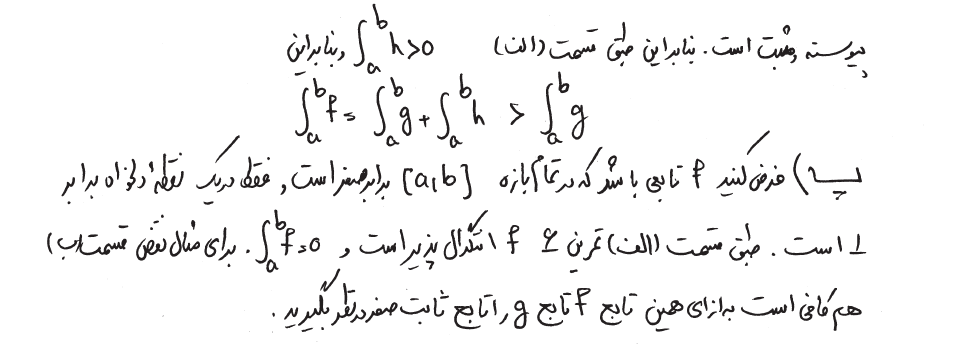 پیوسته و مثبت است. بنابراین طبق قسمت (الف) ∫_a^b h > 0 و بنابراین
∫_a^b f = ∫_a^b g + ∫_a^b h > ∫_a^b g
پ) فرض کنید f تابعی باشد که در تمام بازه [a,b] برابر صفر است و فقط در یک نقطهٔ دلخواه برابر
1 است. طبق قسمت (الف) تمرین 4 f انتگرال پذیر است و ∫_a^b f = 0. برای مثال نقض قسمت (ب)
هم کافی است به ازای همین تابع f تابع g را تابع ثابت صفر در نظر بگیرید.